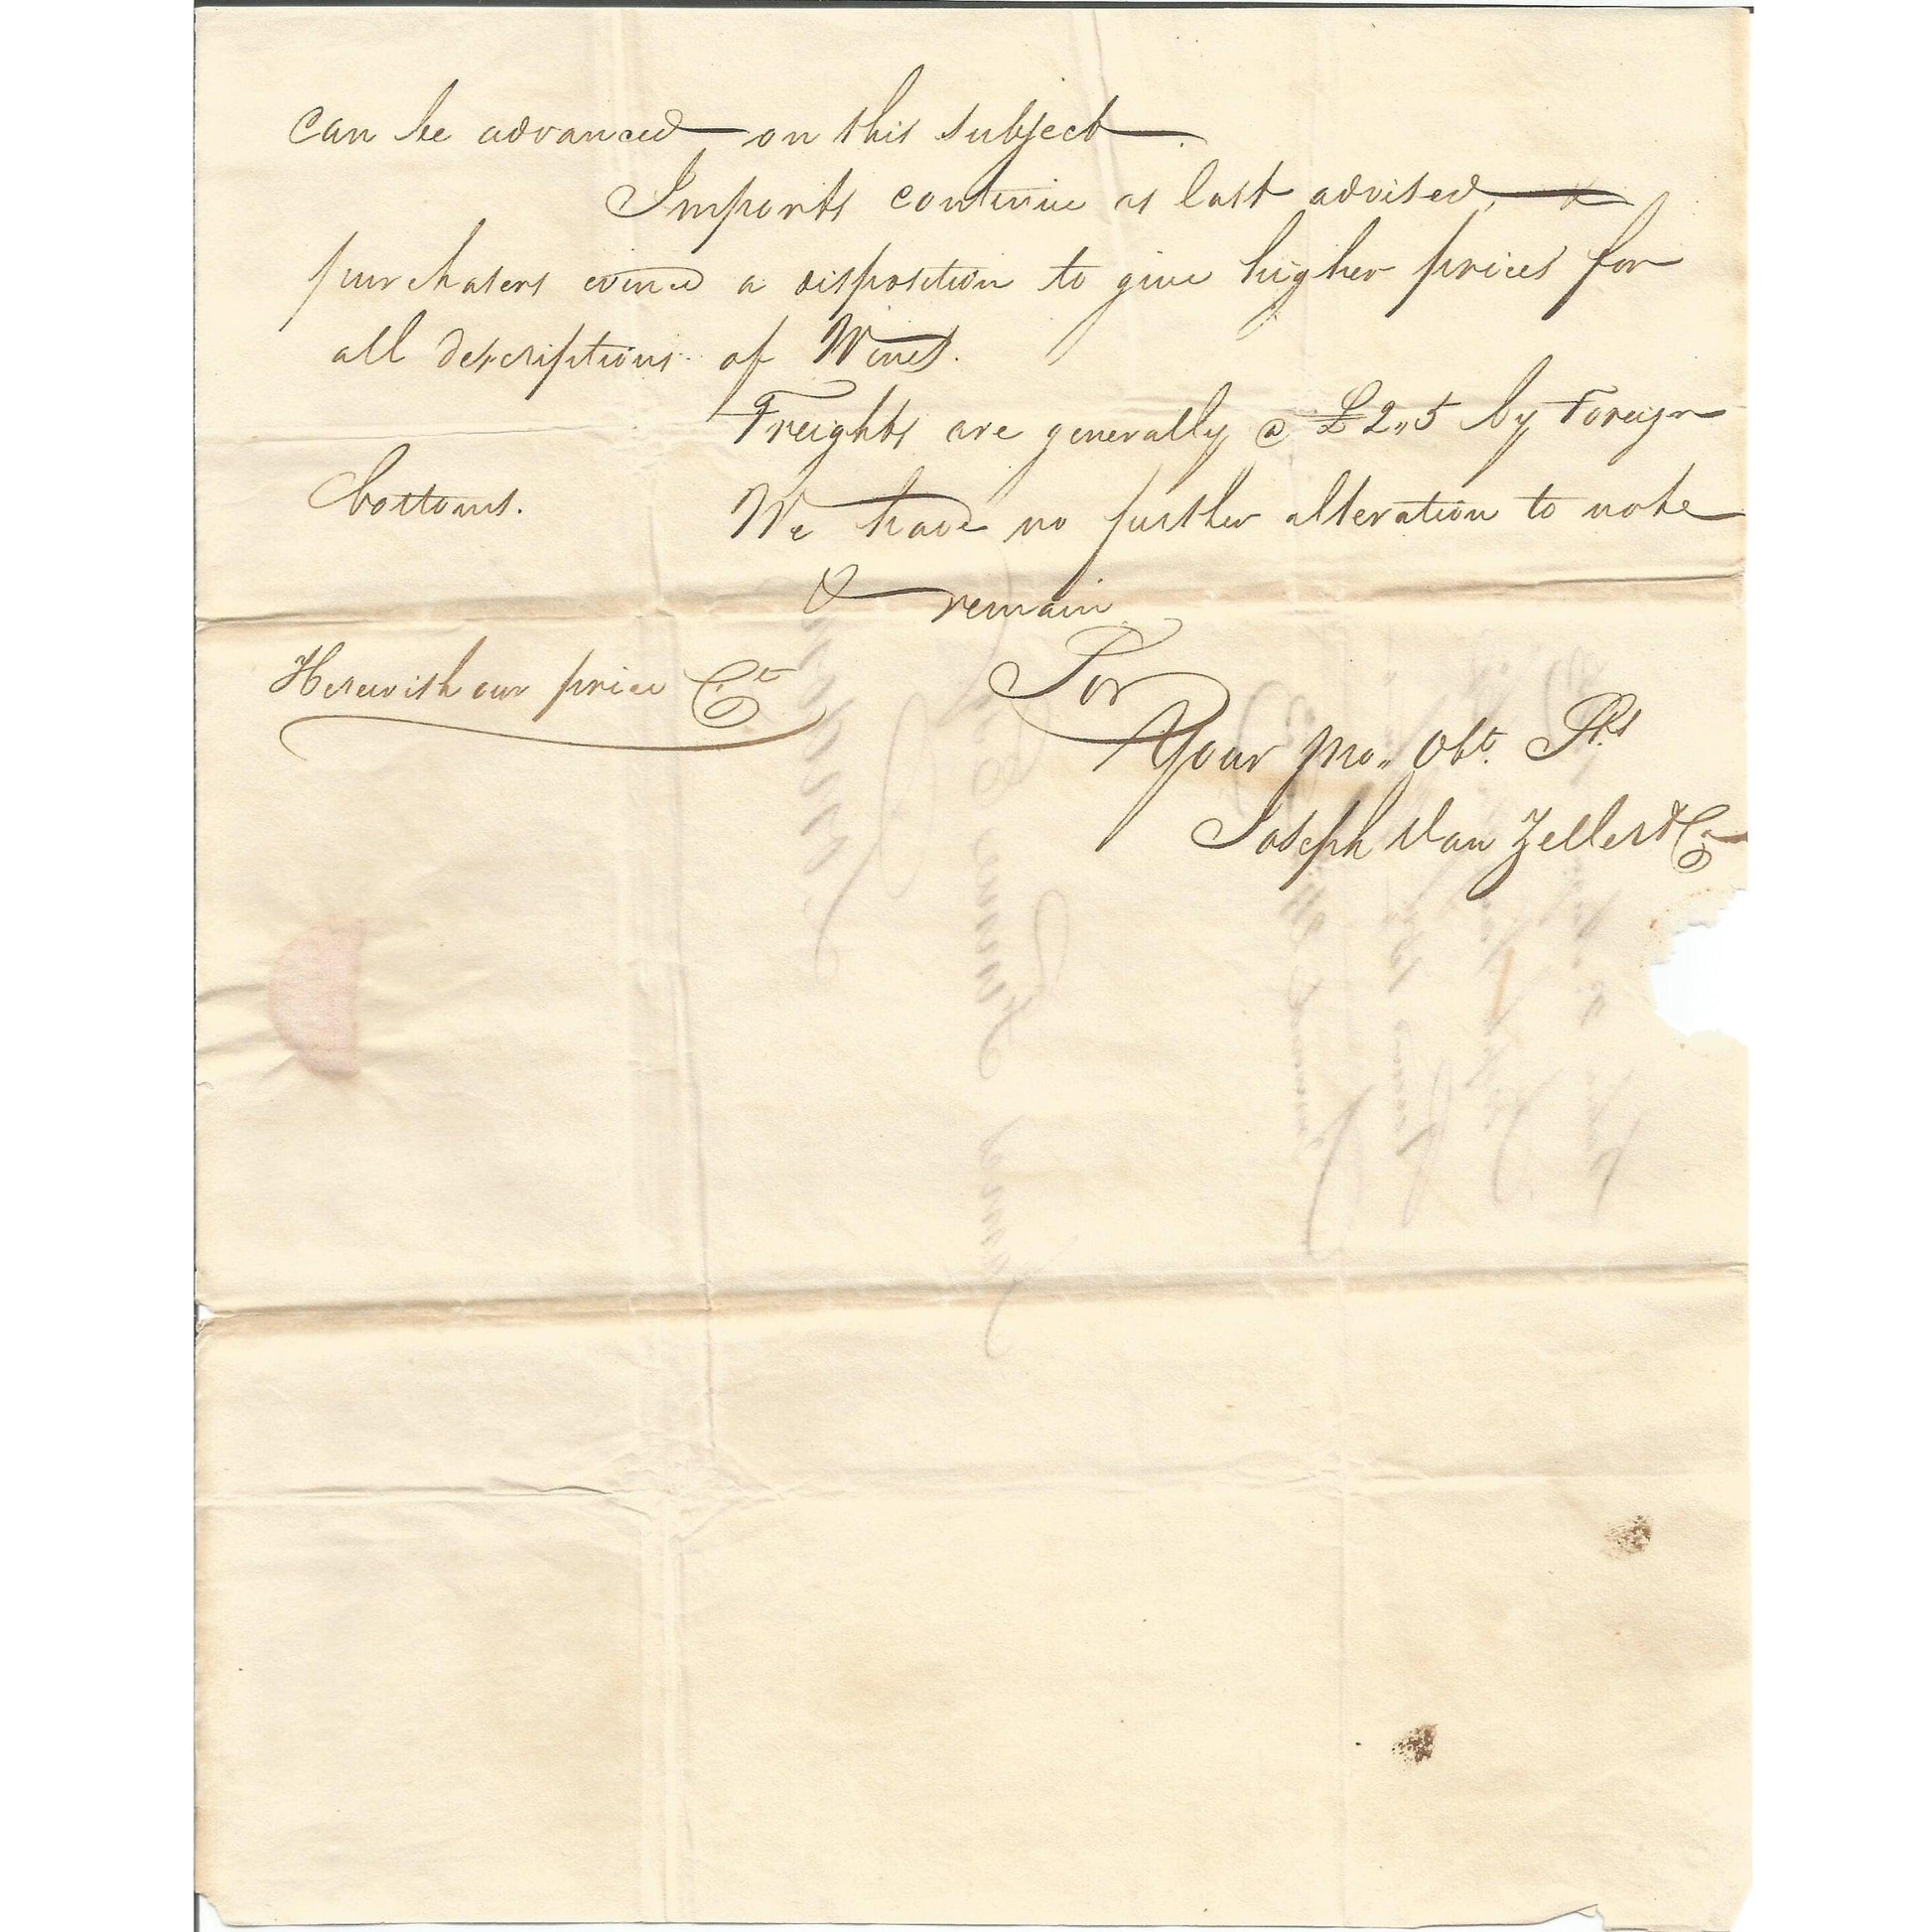 can be advanced on this subject.
Imports continue as last advised, &
purchasers evince a disposition to give higher prices for
all descriptions of Wines.
Freights are generally @ £2,,5 by Foreign
bottoms. We have no further alteration to note
& remain
Herewith our price Ct
Sir
Your Mo,, Obt. Sts
Joseph Van Zeller & Co